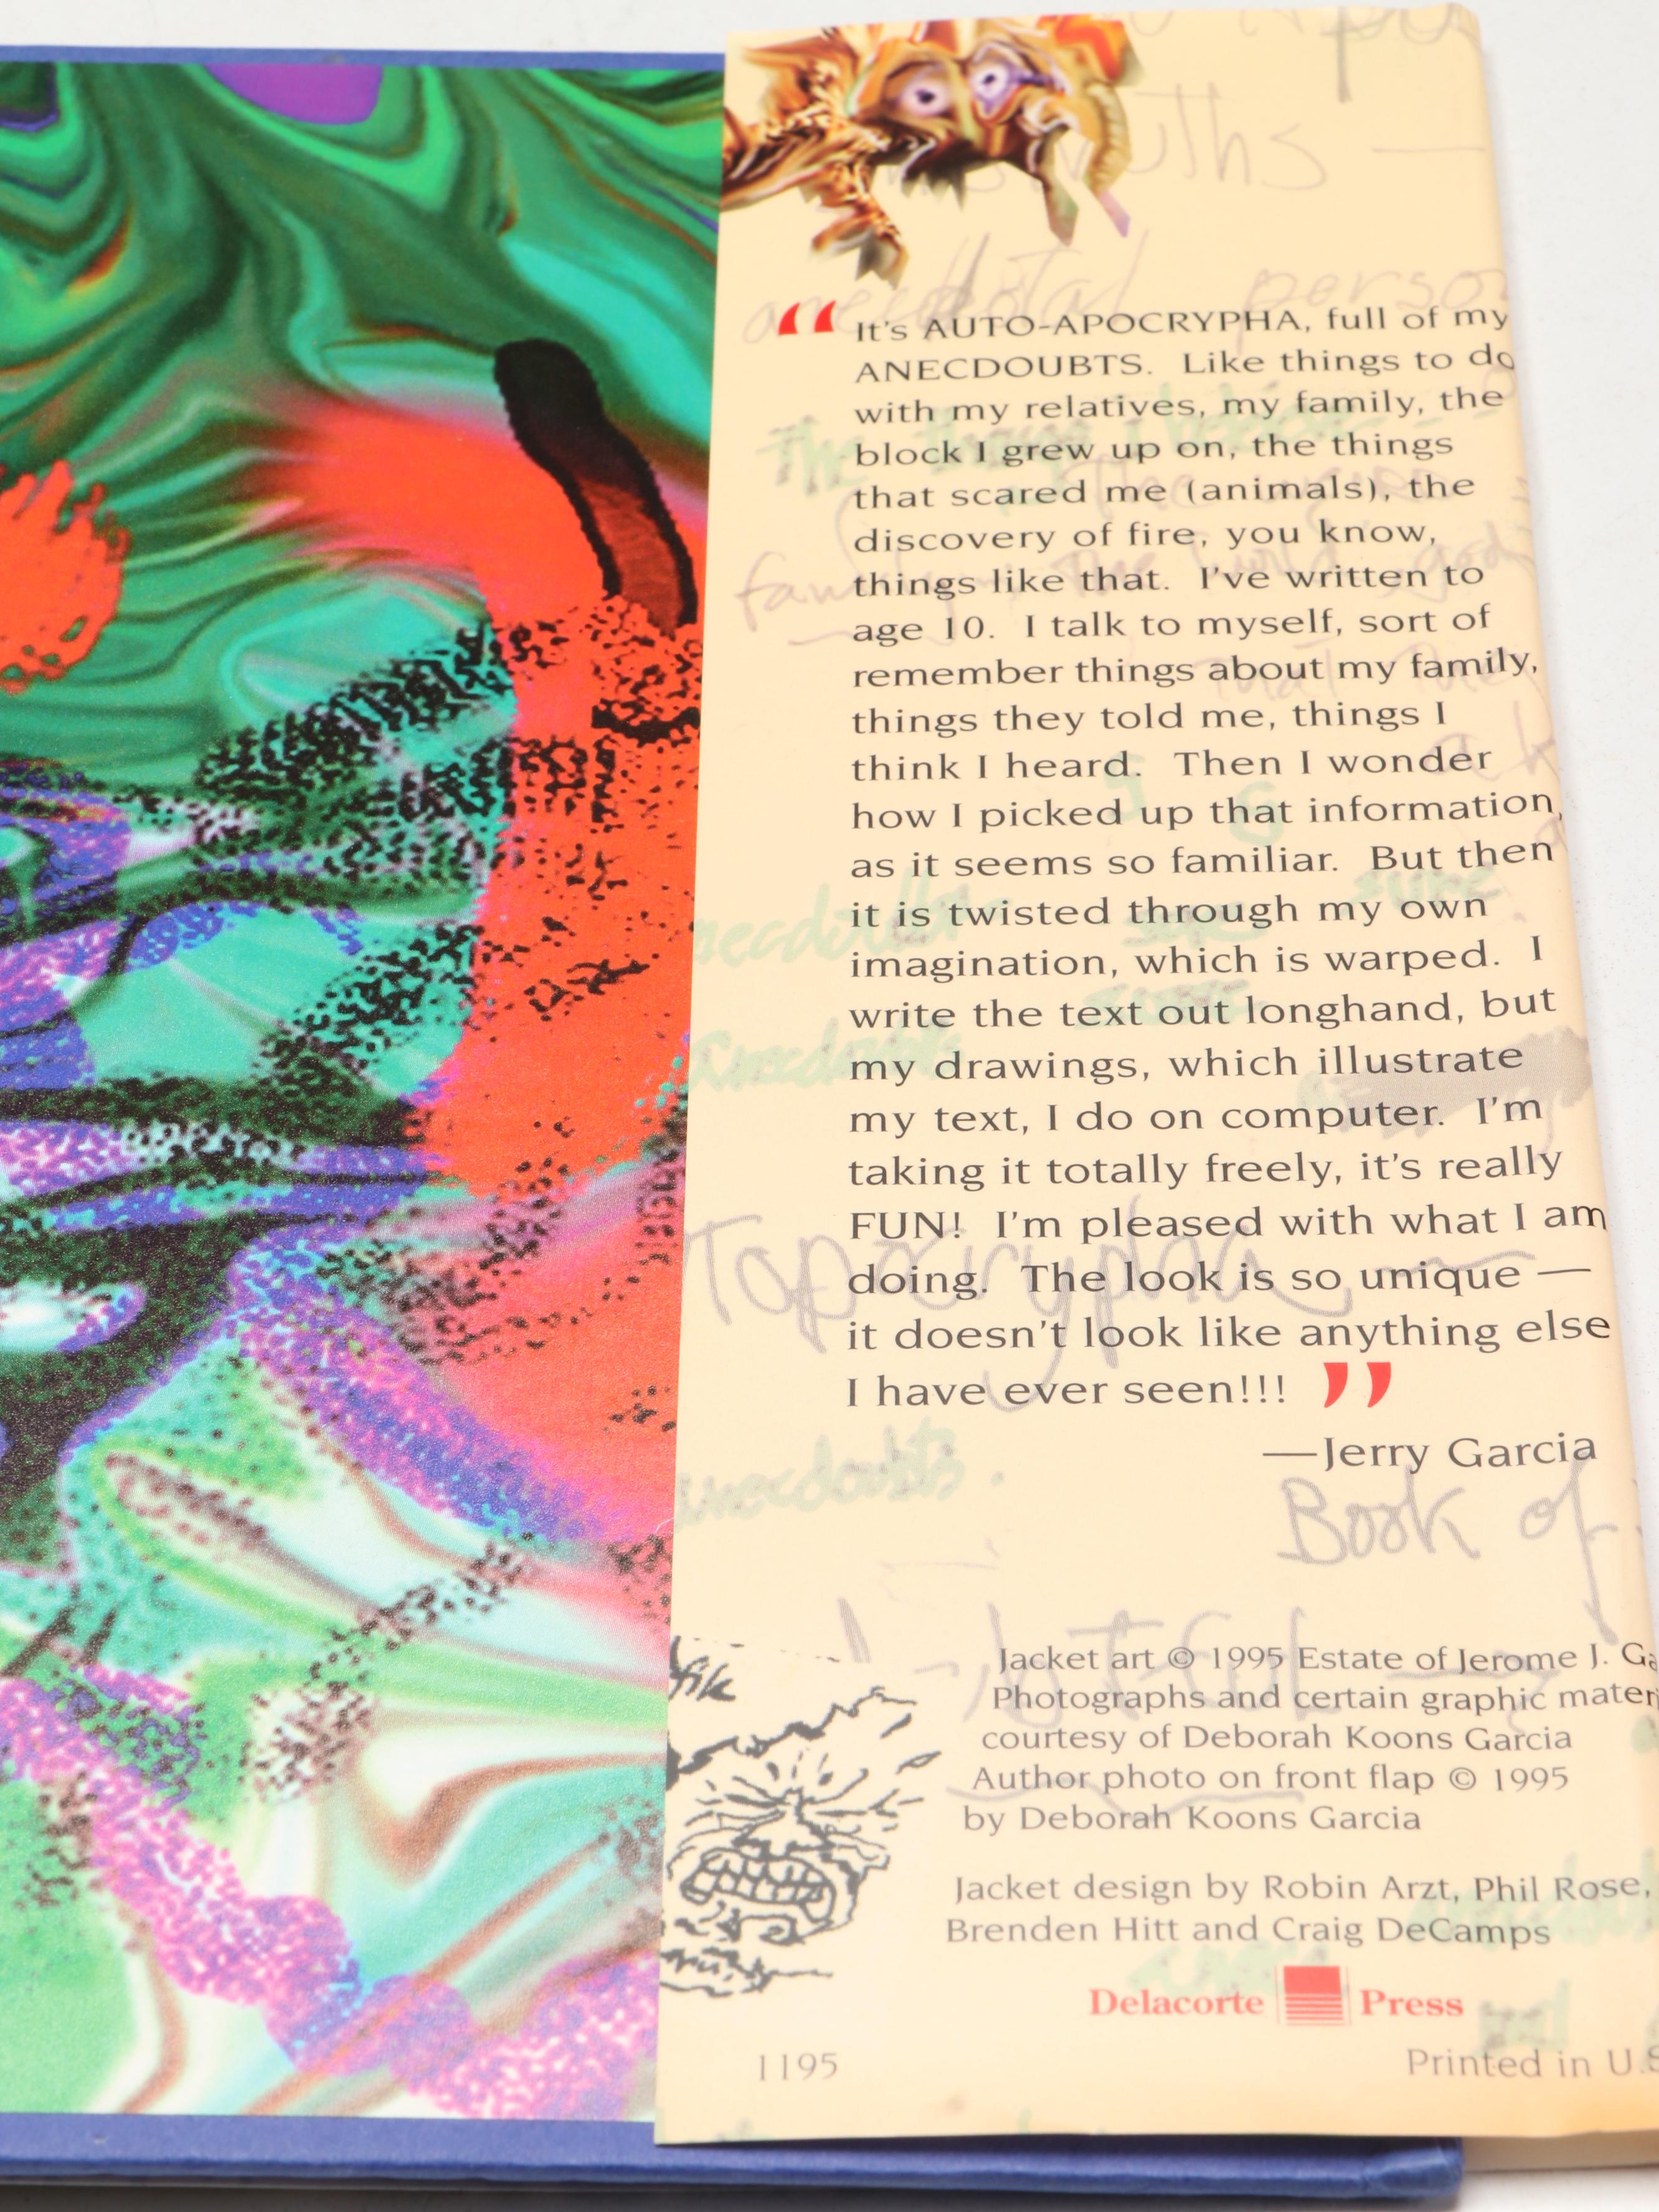 uths —
anecdotal perso
“ It's AUTO-APOCRYPHA, full of my
ANECDOUBTS. Like things to do
with my relatives, my family, the
block I grew up on, the things
that scared me (animals), the
discovery of fire, you know,
things like that. I've written to
age 10. I talk to myself, sort of
remember things about my family,
things they told me, things I
think I heard. Then I wonder
how I picked up that information,
as it seems so familiar. But then
it is twisted through my own
imagination, which is warped. I
write the text out longhand, but
my drawings, which illustrate
my text, I do on computer. I'm
taking it totally freely, it's really
FUN! I'm pleased with what I am
doing. The look is so unique —
it doesn't look like anything else
I have ever seen!!! ”
—Jerry Garcia
Book of
Jacket art © 1995 Estate of Jerome J. Ga
Photographs and certain graphic mater
courtesy of Deborah Koons Garcia
Author photo on front flap © 1995
by Deborah Koons Garcia
Jacket design by Robin Arzt, Phil Rose,
Brenden Hitt and Craig DeCamps
Delacorte Press
1195
Printed in U.S